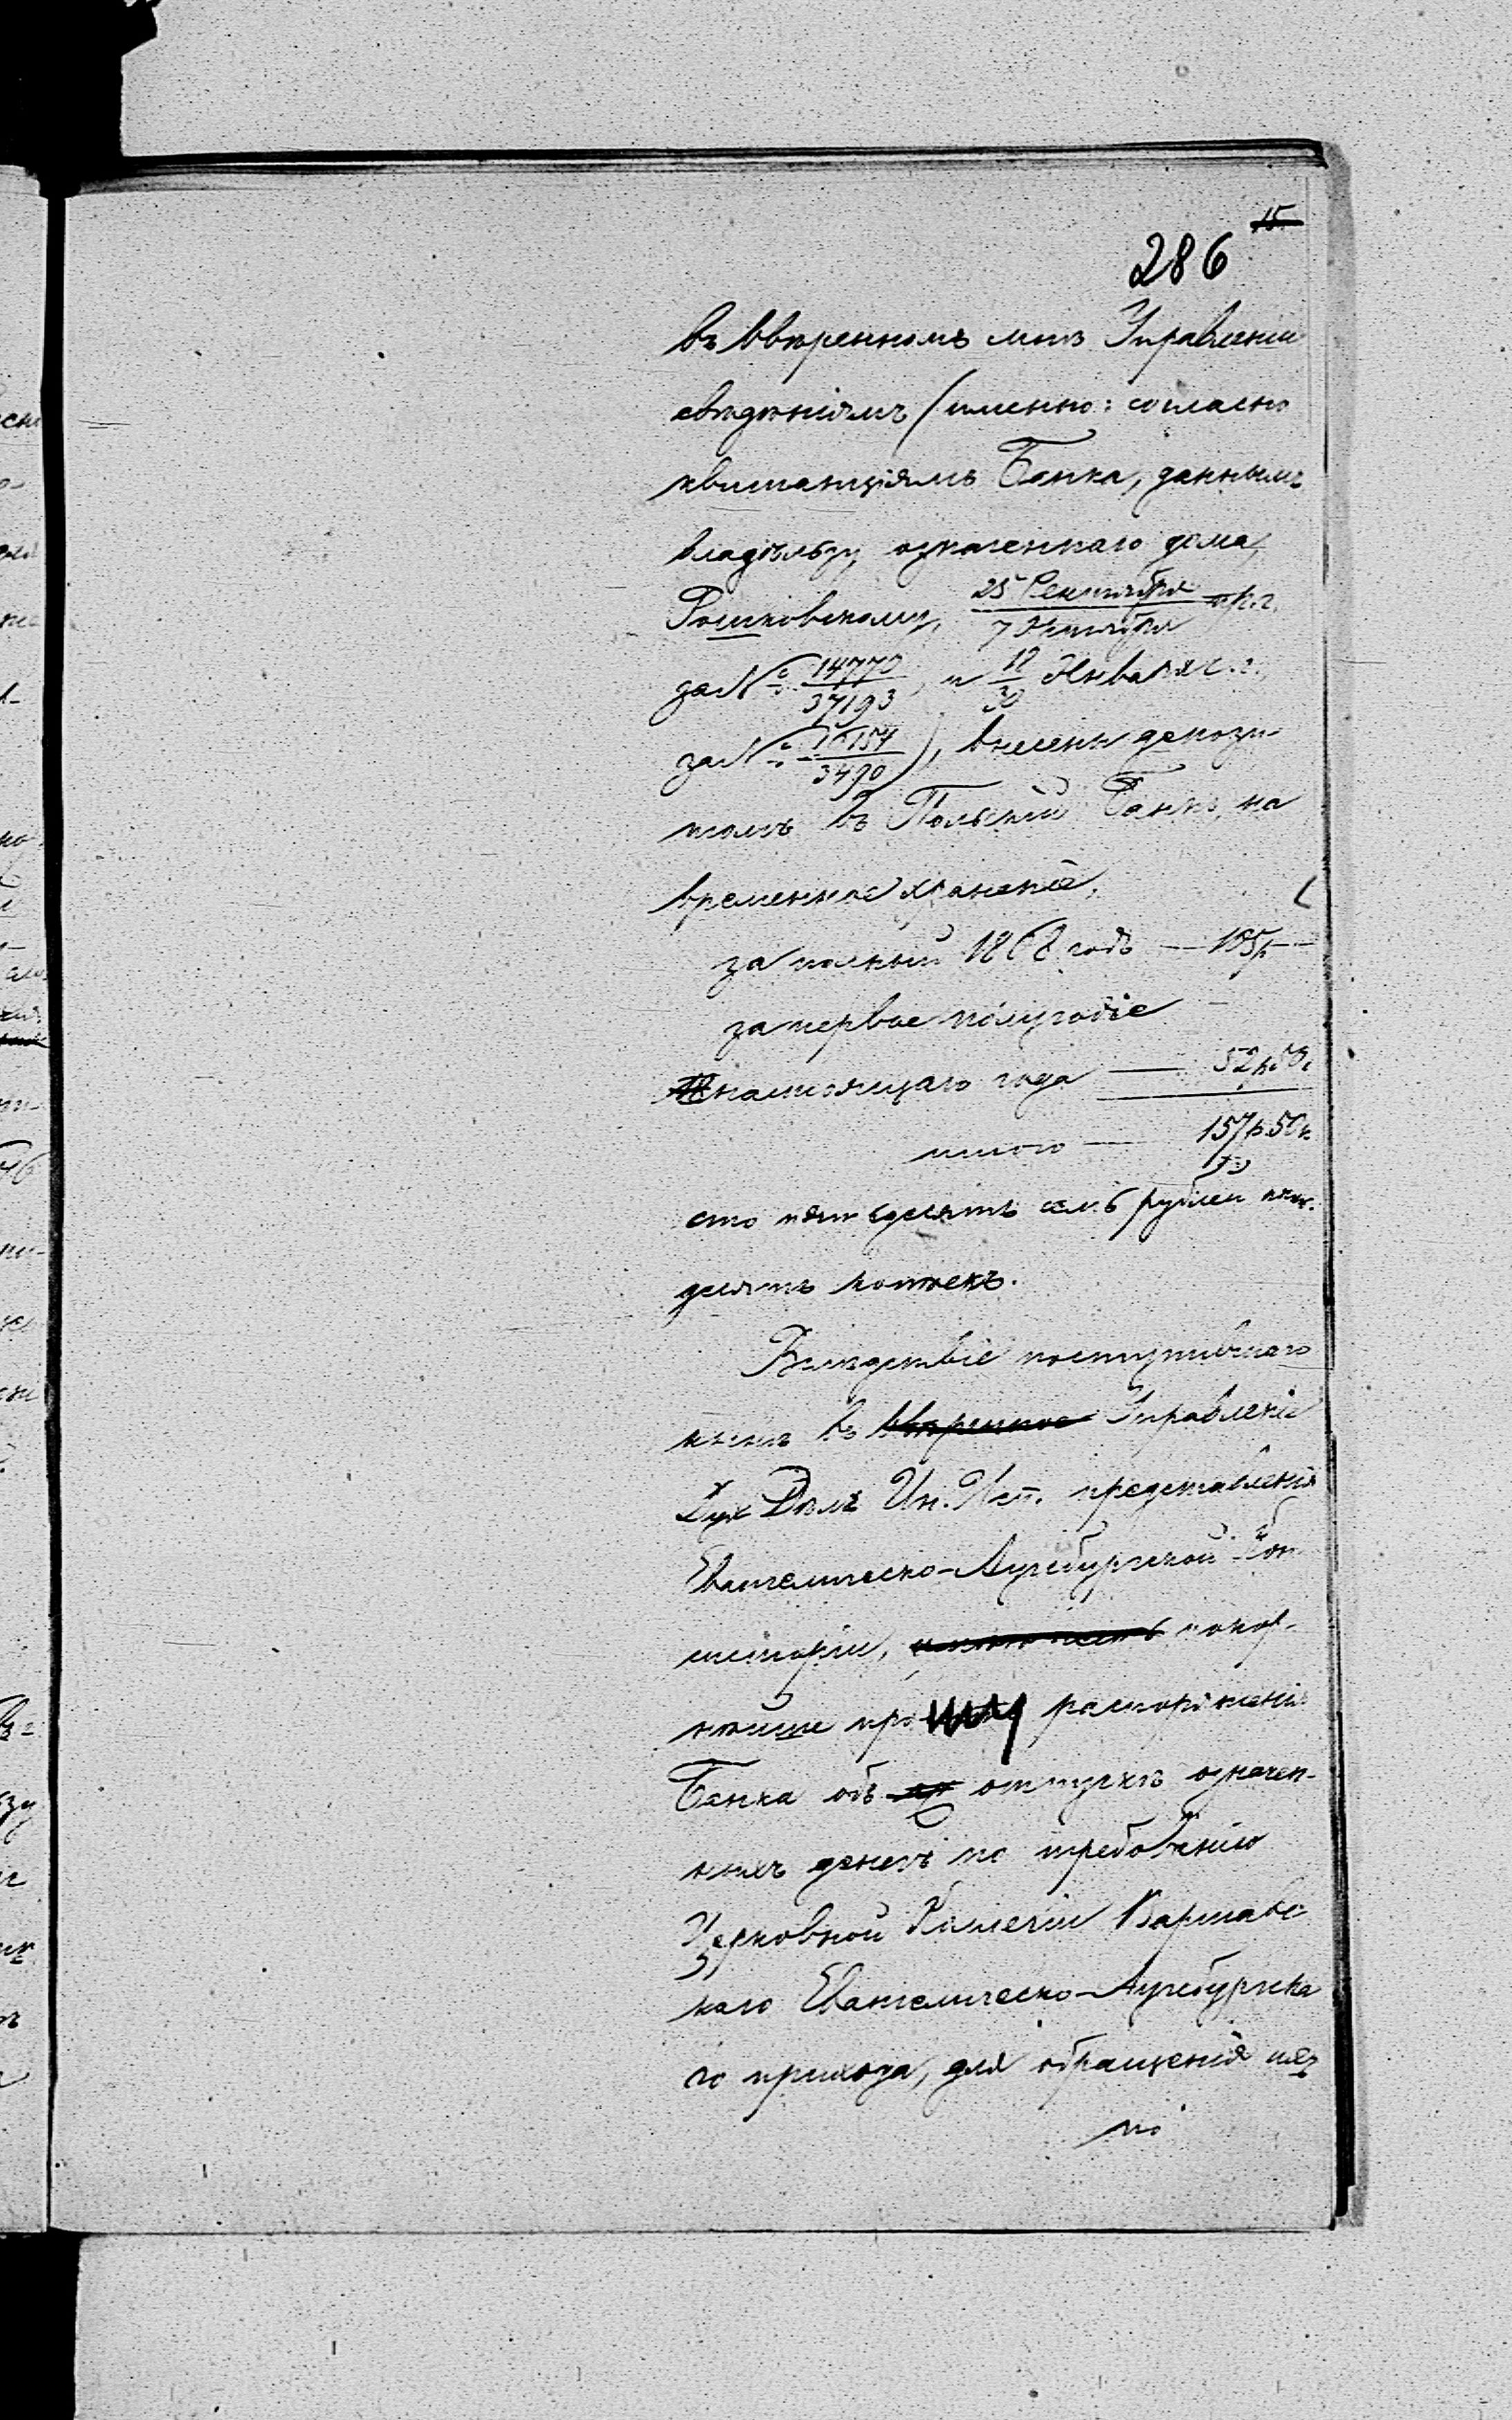 15
286
въ ввѣренномъ мнѣ Управленіи
свѣдѣніямъ (именно: согласно
квитанціямъ Банка, даннымъ
владѣльцу означеннаго дома,
Рошковскому, 25 Сентября / 7 Октября пр. г.
за № 14770/37193, и 18/30 Января с. г.,
за № 16154/3490), внесены депози-
томъ въ Польскій Банкъ, на
временное храненіе,
за полный 1868 годъ — 105 р —
за первое полугодіе
настоящаго года — 52 р 50 к
итого — 157 р. 50 к
сто пятьдесятъ семь рублей пять-
десятъ копѣекъ.
Вслѣдствіе поступившаго
нынѣ въ ввѣренное Управленіе
Дух Дѣлъ Ин. Исп. представленія
Евангелическо-Аугсбургской Кон
систоріи, покор-
нѣйше прошу распоряженія
Банка объ отпускѣ означен-
ныхъ денегъ по требованію
Церковной Коллегіи Варшавс
каго Евангелическо-Аугсбургска
го прихода, для обращенія ихъ
по